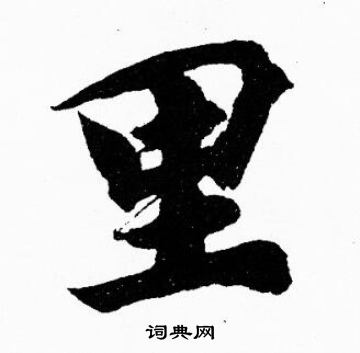 里
词典网